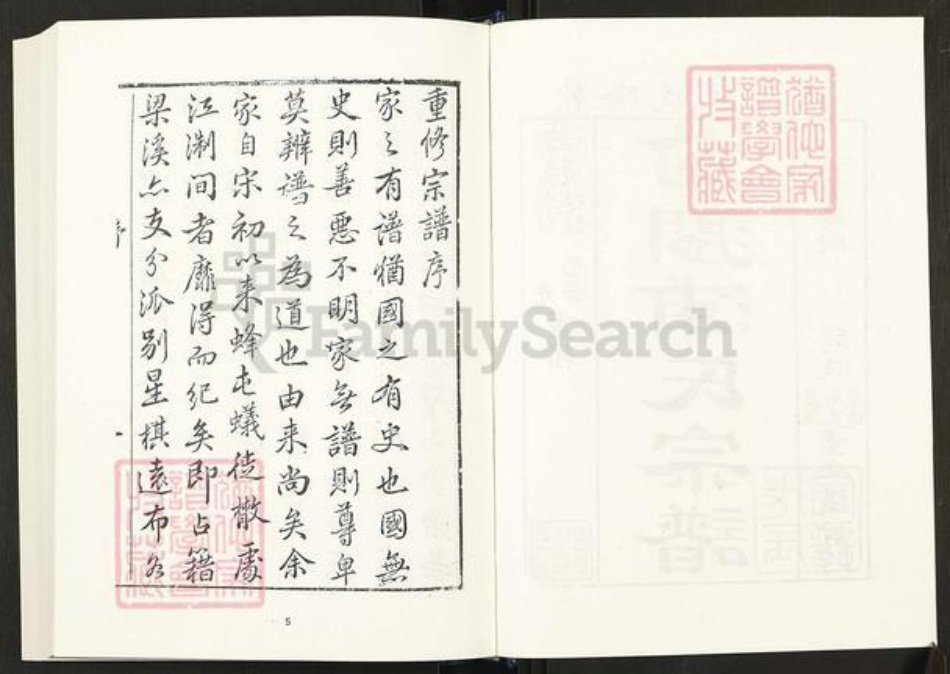 重修宗譜序
家之有譜猶國之有史也國無
史則善惡不明家無譜則尊卑
莫辨譜之為道也由來尚矣余
家自宋初以來蜂屯蟻徙散處
江淛間者靡得而紀矣即占籍
梁溪亦支分派別星棋遠布各
序
一
5
猶他家
譜學會
收藏
FamilySearch